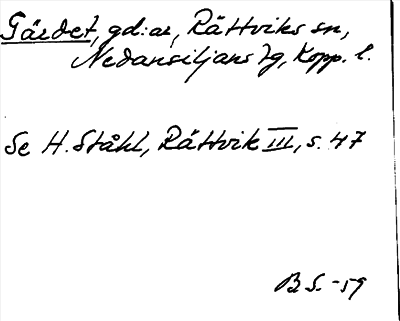 Gärdet, gd:ar, Rättviks sn,
Nedansiljans tg, Kopp. l.
Se H. Ståhl, Rättvik III, s. 47
B S. -59